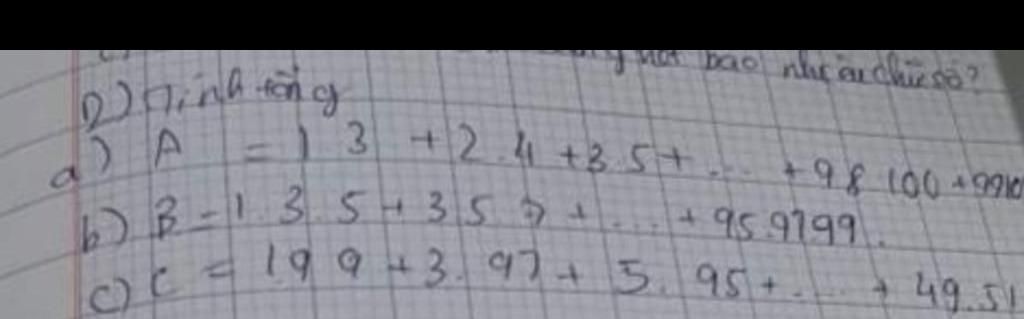 bao nhiêu chữ số?
D) Tính tổng
a) A = 1 3 + 2.4 + 3.5 + ... + 98 100 + 99 10
b) B = 1.3.5 + 3 5 7 + ... + 95.97 99.
c) C = 1 9 9 + 3.97 + 5.95 + .... + 49.51